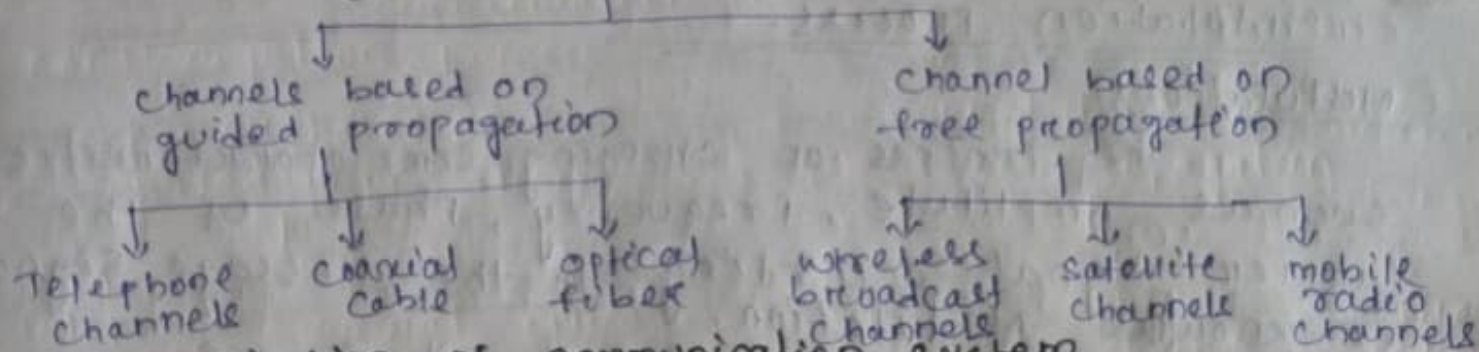 channels based on
guided propagation
channel based on
free propagation
Telephone
channels
coaxial
cable
optical
fiber
wireless
broadcast
channels
satellite
channels
mobile
radio
channels
of communication system